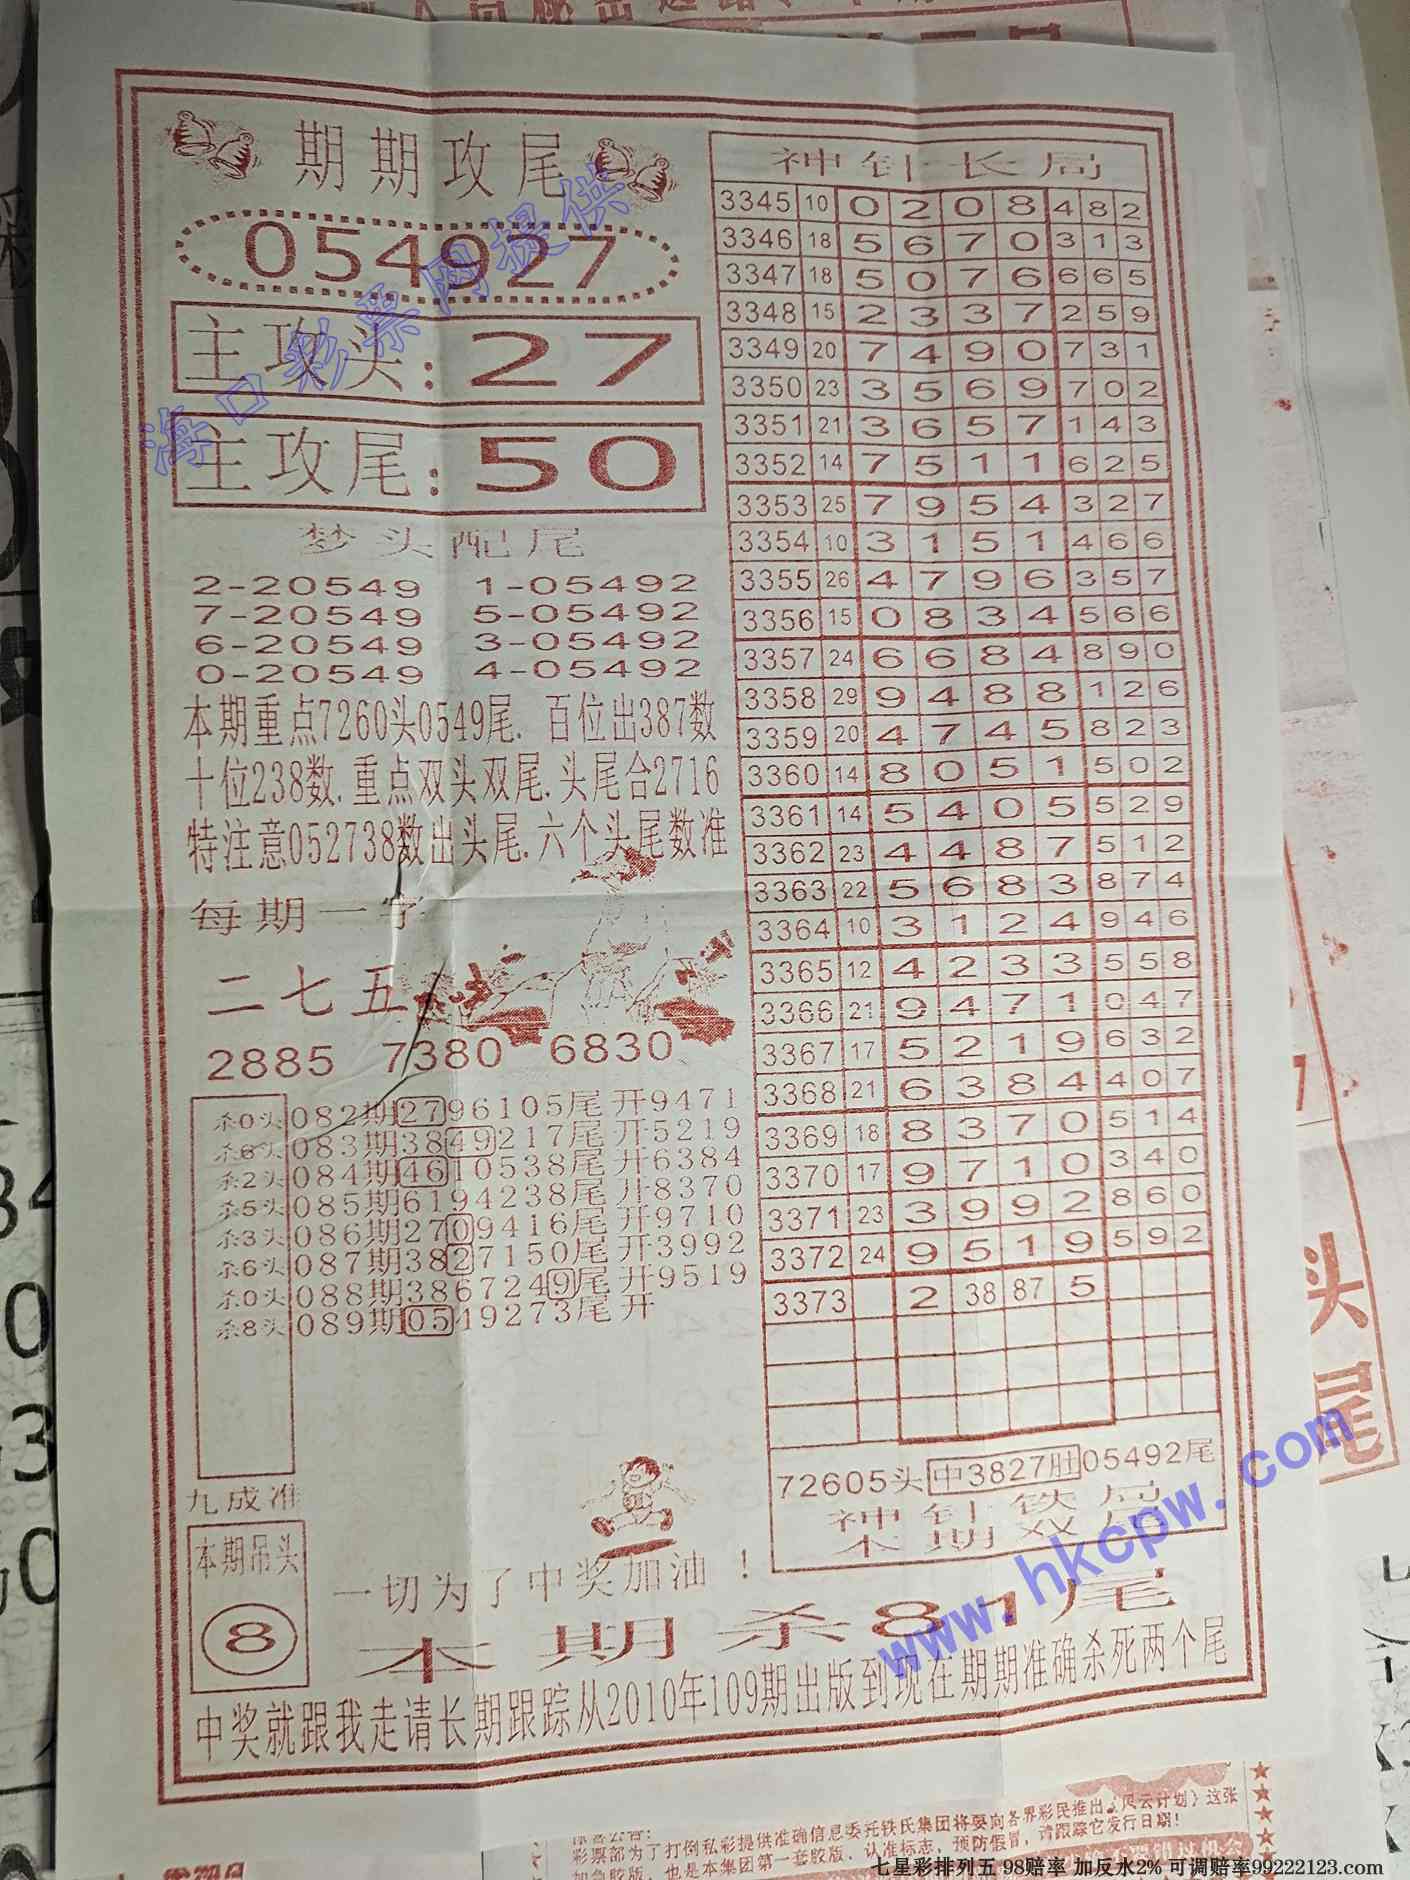 期期攻尾
054927
主攻头:27
主攻尾:50
梦头配尾
2-20549 1-05492
7-20549 5-05492
6-20549 3-05492
0-20549 4-05492
本期重点7260头0549尾. 百位出387数
十位238数.重点双头双尾.头尾合2716
特注意052738数出头尾.六个头尾数准
每期一字
二七五
2885 7380 6830
杀0头 082期2796105尾 开9471
杀6头 083期3849217尾 开5219
杀2头 084期4610538尾 开6384
杀5头 085期6194238尾 开8370
杀3头 086期2709416尾 开9710
杀6头 087期3827150尾 开3992
杀0头 088期3867249尾 开9519
杀8头 089期0549273尾 开
九成准
本期吊头
8
一切为了中奖加油！
本期杀81尾
中奖就跟我走请长期跟踪从2010年109期出版到现在期期准确杀死两个尾
神针长局
3345 10 0 2 0 8 4 8 2
3346 18 5 6 7 0 3 1 3
3347 18 5 0 7 6 6 6 5
3348 15 2 3 3 7 2 5 9
3349 20 7 4 9 0 7 3 1
3350 23 3 5 6 9 7 0 2
3351 21 3 6 5 7 1 4 3
3352 14 7 5 1 1 6 2 5
3353 25 7 9 5 4 3 2 7
3354 10 3 1 5 1 4 6 6
3355 26 4 7 9 6 3 5 7
3356 15 0 8 3 4 5 6 6
3357 24 6 6 8 4 8 9 0
3358 29 9 4 8 8 1 2 6
3359 20 4 7 4 5 8 2 3
3360 14 8 0 5 1 5 0 2
3361 14 5 4 0 5 5 2 9
3362 23 4 4 8 7 5 1 2
3363 22 5 6 8 3 8 7 4
3364 10 3 1 2 4 9 4 6
3365 12 4 2 3 3 5 5 8
3366 21 9 4 7 1 0 4 7
3367 17 5 2 1 9 6 3 2
3368 21 6 3 8 4 4 0 7
3369 18 8 3 7 0 5 1 4
3370 17 9 7 1 0 3 4 0
3371 23 3 9 9 2 8 6 0
3372 24 9 5 1 9 5 9 2
3373 2 38 87 5
72605头 中3827肚 05492尾
神针铁局
本期双
海口彩票网提供
www.hkcpw.com
头尾
彩票部为了打倒私彩提供准确信息委托铁氏集团将要向各界彩民推出《风云计划》这张
也是本集团第一套胶版，认准标志，预防假冒，请跟踪它发行日期！
七星彩排列五 98赔率 加反水2% 可调赔率99222123.com